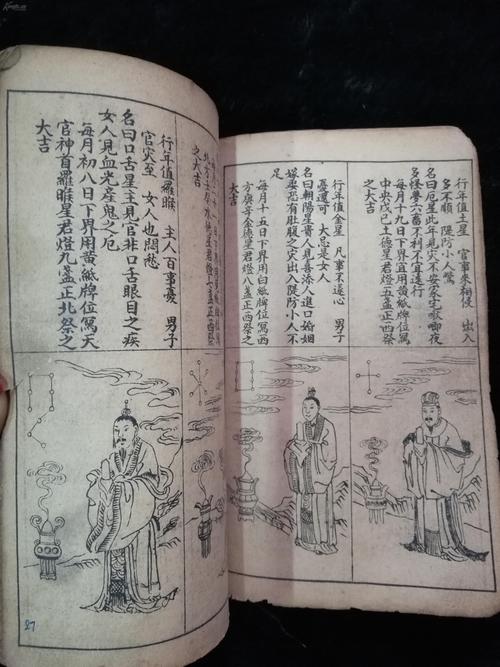 行年值土星 官事來相侵 出入
多不順 隄防小人驚
名曰厄星此年見災不安家宅啾唧夜
多怪夢六畜不利不宜遠行
每月十九日下界宜用黃紙牌位寫
中央戊己土德星君燈五盞正西祭
之大吉
行年值金星 凡事不遂心 男子
憂還可 大忌是女人
名曰朝陽星貴人見喜添人進口婚姻
嫁娶恐有肚腹之災出入隄防小人不
足
每月十五日下界用白紙牌位寫西
方庚辛金德星君燈八盞正西祭之
大吉
北方壬癸水德星君燈七盞正西祭
之大吉
行年值羅睺 主人百事憂 男子
官災至 女人也悶愁
名曰口舌星主見官非口舌眼目之疾
女人見血光產鬼之厄
每月初八日下界用黃紙牌位寫天
官神首羅睺星君燈九盞正北祭之
大吉
27